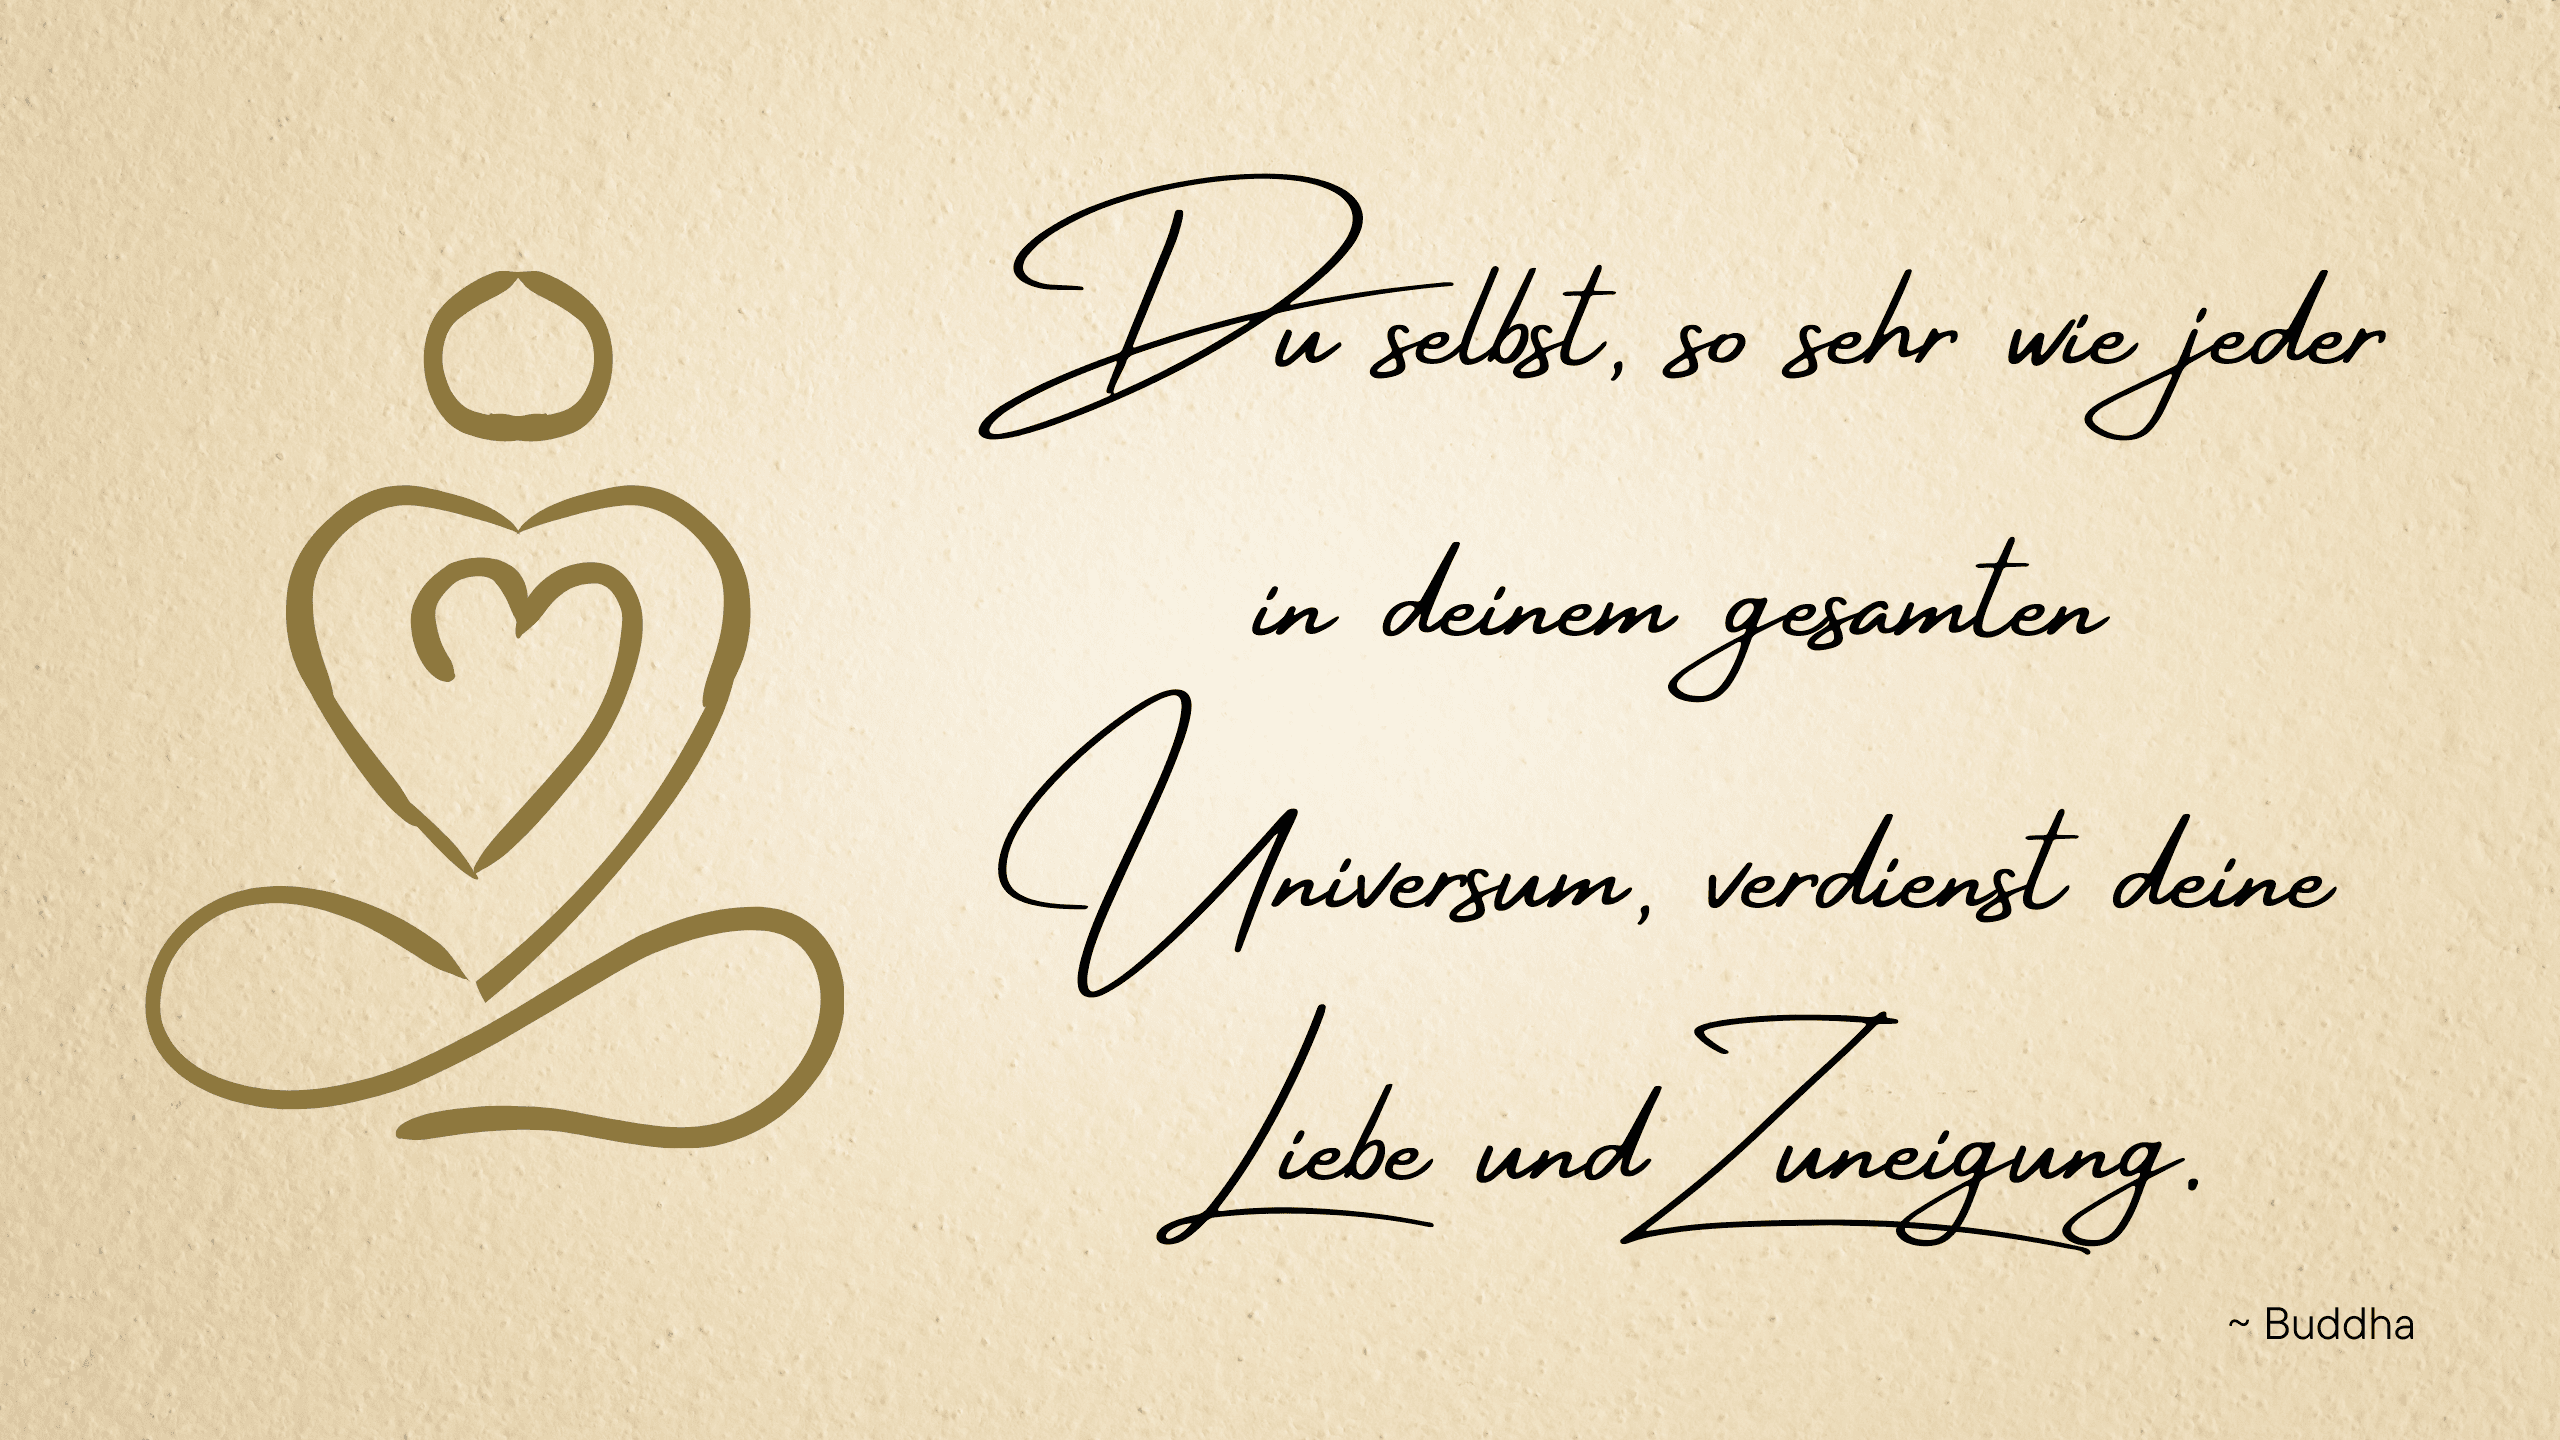 Du selbst, so sehr wie jeder
in deinem gesamten
Universum, verdienst deine
Liebe und Zuneigung.
~ Buddha